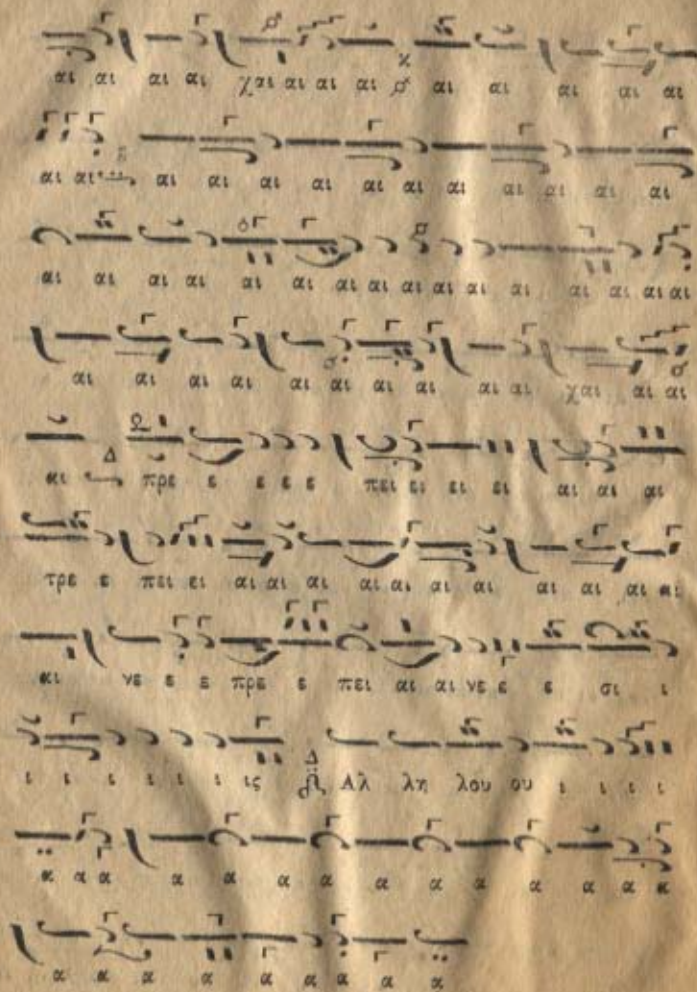 αι αι αι αι χαι αι αι αι αι αι αι αι αι
αι αι αι αι αι αι αι αι αι αι αι αι αι
αι αι αι αι αι αι αι αι αι αι αι αι αι αι αι αι
αι αι αι αι αι αι αι αι αι αι χαι αι αι
αι Δ πρε ε ε ε ε πει ει ει ει αι αι αι
τρε ε πει ει αι αι αι αι αι αι αι αι αι αι αι
αι νε ε ε πρε ε πει αι αι νε ε ε σι ι
ι ι ι ι ι ι ις Δ Αλ λη λου ου ι ι ι ι
α α α α α α α α α α α α α α
α α α α α α α α α